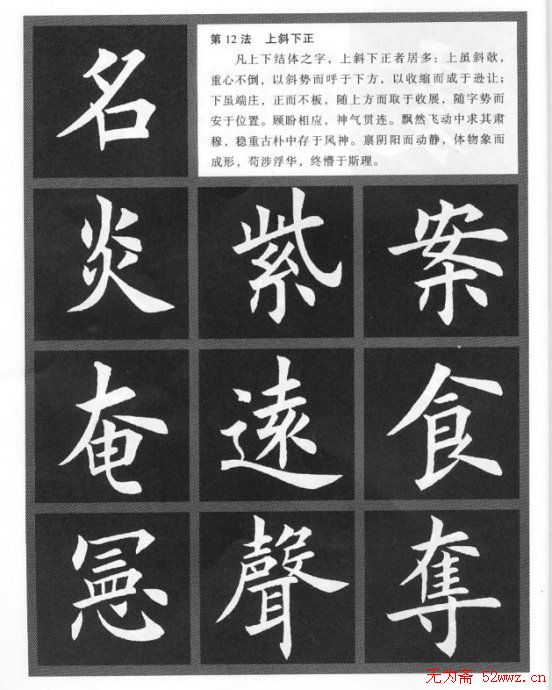 名
第12法 上斜下正
凡上下结体之字，上斜下正者居多；上虽斜欹，
重心不倒，以斜势而呼于下方，以收缩而成于逊让；
下虽端庄，正而不板，随上方而取于收展，随字势而
安于位置。顾盼相应，神气贯连。飘然飞动中求其肃
穆，稳重古朴中存于风神。禀阴阳而动静，体物象而
成形，苟涉浮华，终懵于斯理。
炎 紫 案
奄 遠 食
聲 奪
无为斋 52wwz.cn